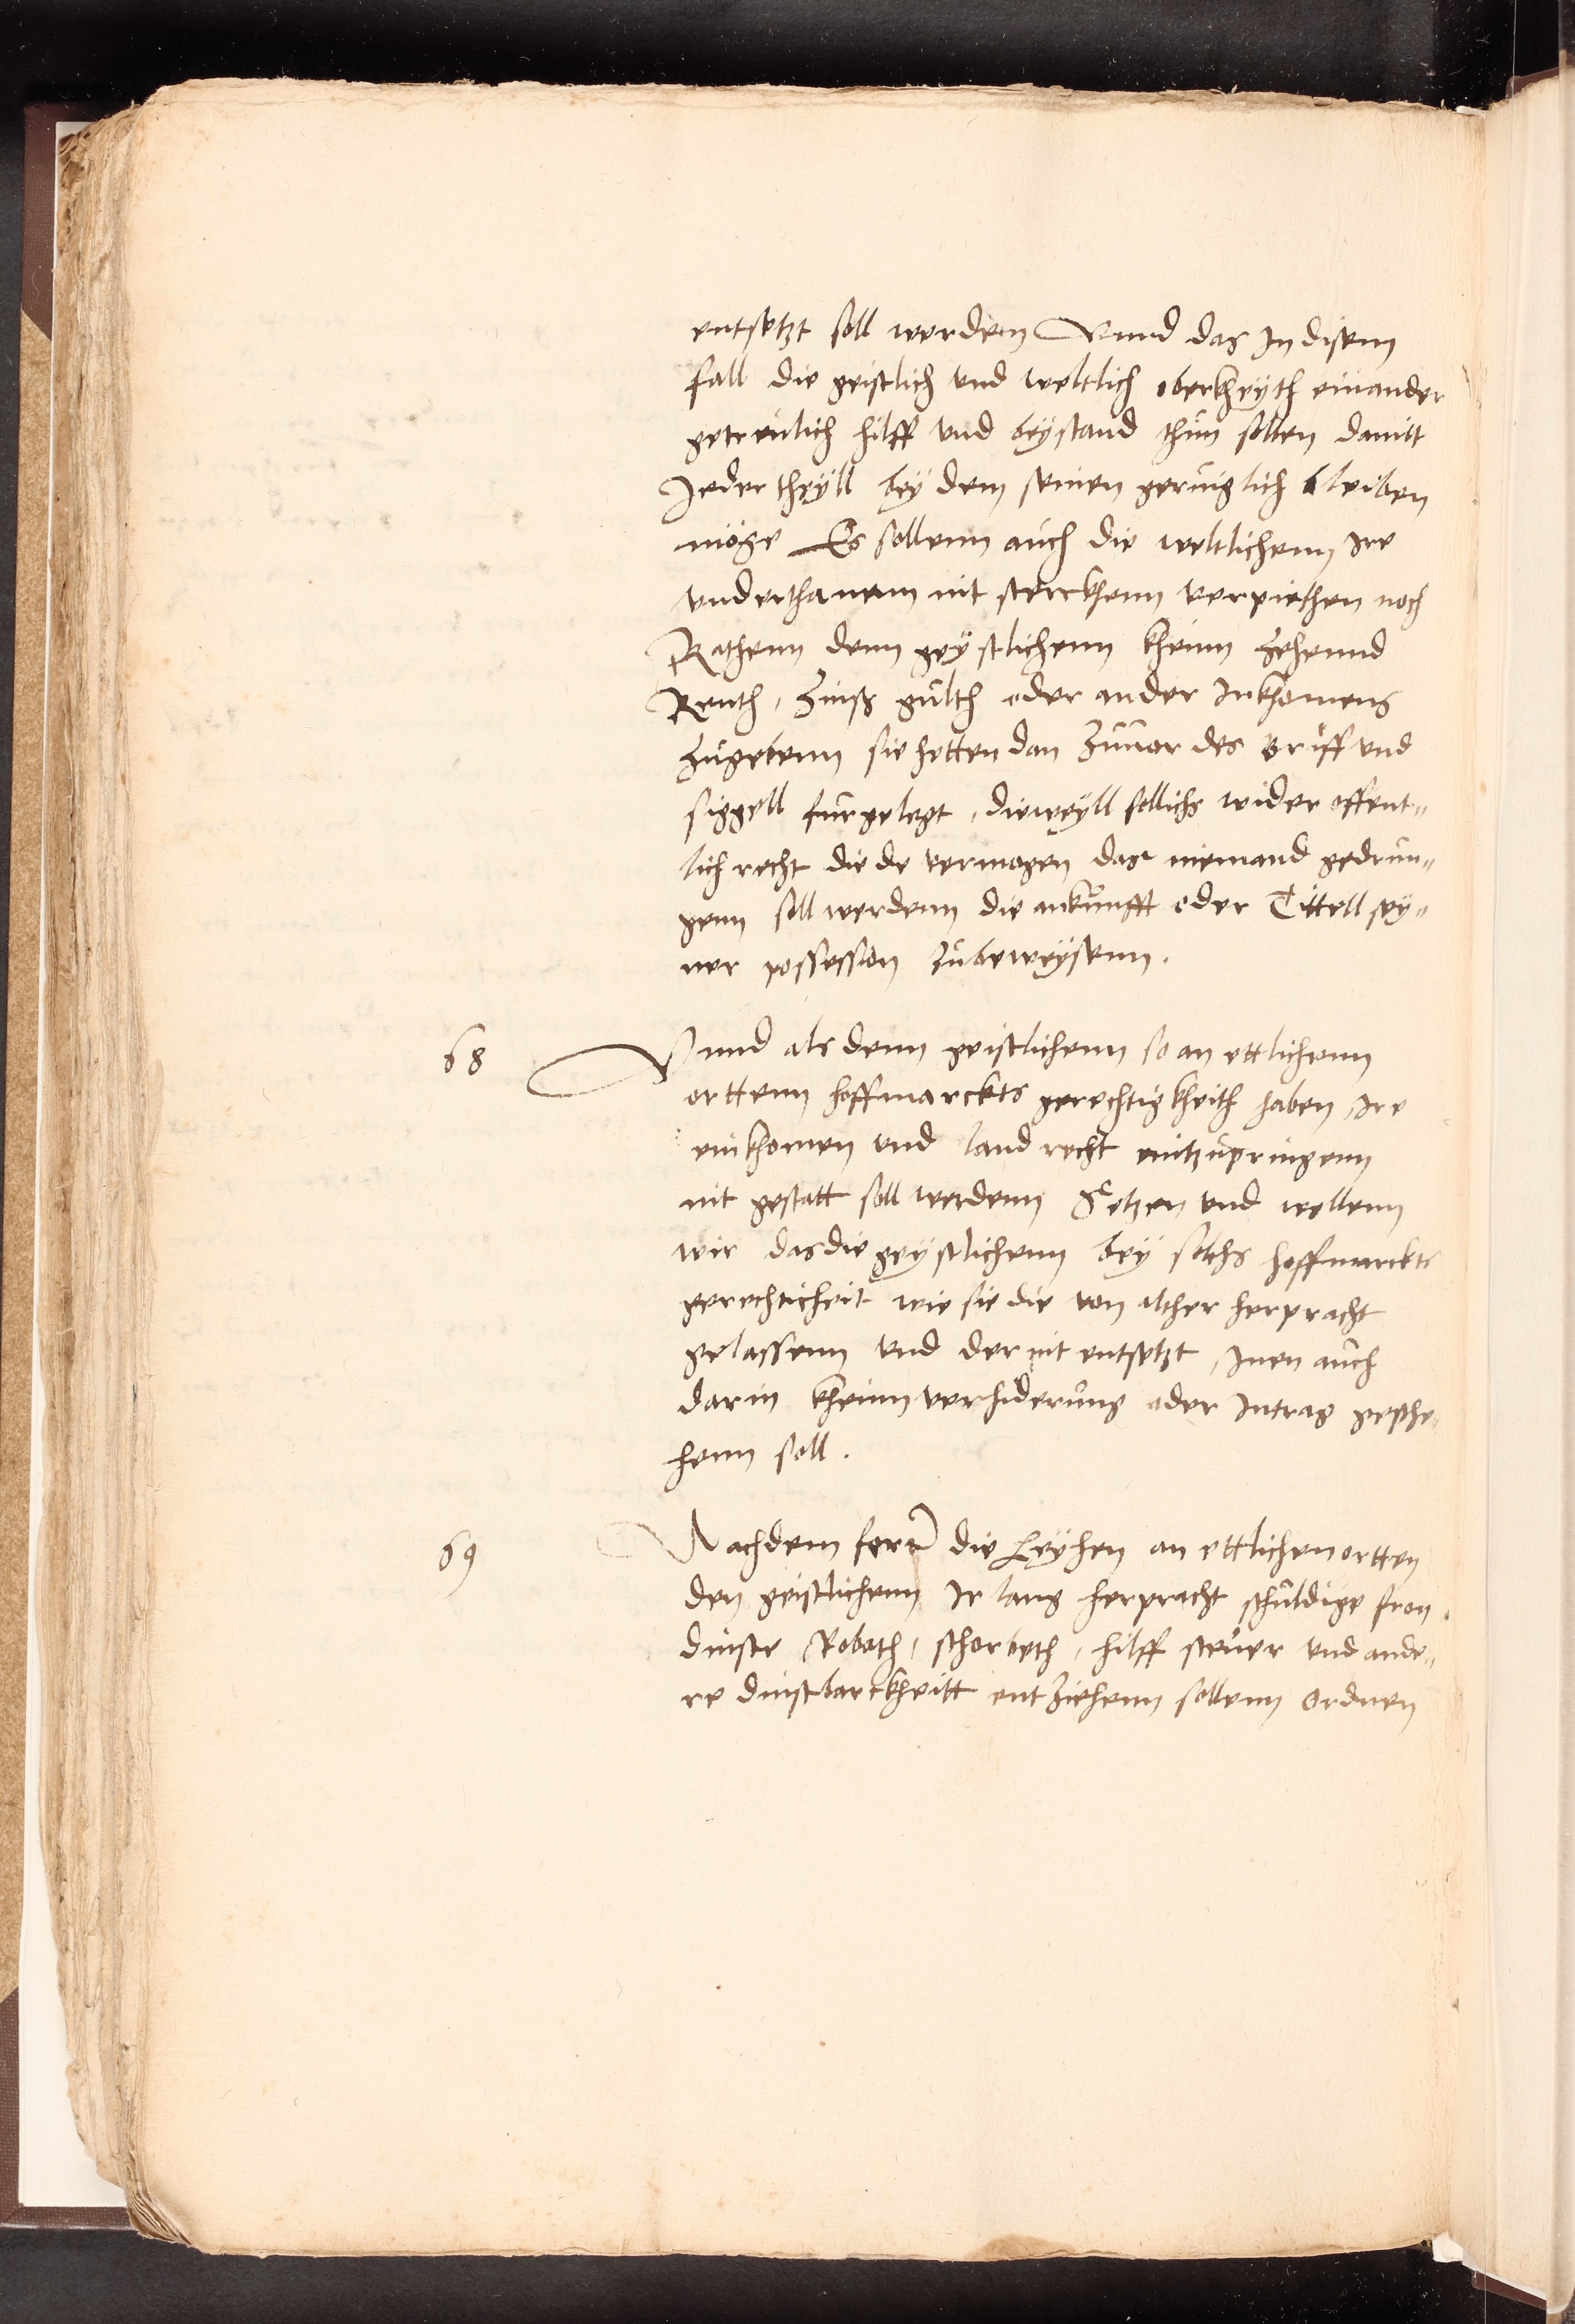 entsetzt soll werdenn Vnnd das In disem
fall die geistlich vnd weltlich oberkheyth einander
getreulich hilff vnd beystand thun sollen damit
Jeder theyll bey dem seinen geruiglich bleiben
möge Es sollenn auch die weltlichenn Ire
vnderthanenn nit sterckhenn verpiethen noch
Rathenn denn geystlichenn kheinn Zehennd
Renth, Zinß gulth oder ander Inkhomens
Zugebenn sie hetten dan Zuuor des brieff vnd
siggell furgelegt, dieweyll sollichs wider offent„
lich recht die do vermogen das niemand gedrun„
genn soll werdenn die ankunfft oder Tittell sey„
ner possession Zubeweysenn.
68 Vnnd als denn geistlichenn so an ettlichenn
orttenn hoffmarckts gerechtigkheith haben, Ire
einkhomen vnd land recht eintzupringenn
nit gestatt soll werdenn Setzen vnd wellenn
wir das die geystlichenn bey solchs hoffmarckts
gerechticheit wie sie die von alther herpracht
gelassenn vnd der nit entsetzt, Inen auch
darin kheinn verhiderung oder Intrag geshe„
henn soll.
69 Nachdem ferr die Leyhen an ettlichen ortten
den geistlichenn Ir lang herpracht schuldige fron
dinste Roboth, scharbeth, hilff steuer vnd ande„
re dinstbarckheitt entziehenn sollenn Ordnen